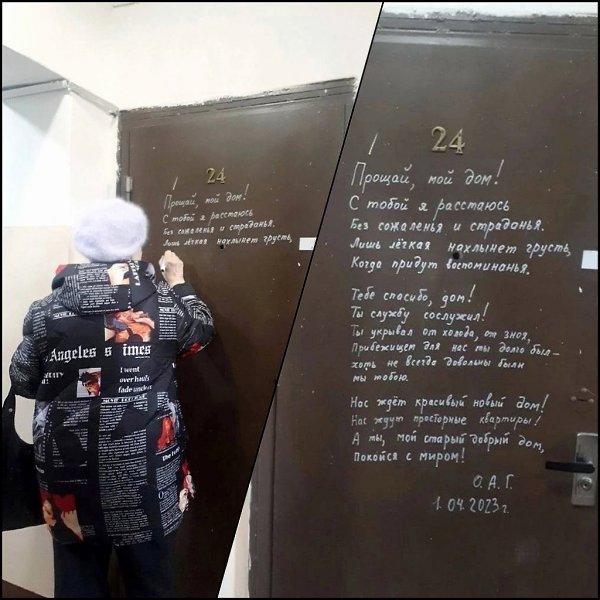 24
Прощай, мой дом!
С тобой я расстаюсь
Без сожаленья и страданья.
Лишь лёгкая нахлынет грусть,
24
Прощай, мой дом!
С тобой я расстаюсь
Без сожаленья и страданья.
Лишь лёгкая нахлынет грусть,
Когда придут воспоминанья.
Тебе спасибо, дом!
Ты службу сослужил!
Ты укрывал от холода, от зноя,
Прибежищем для нас ты долго был —
хоть не всегда довольны были
мы тобою.
Нас ждёт красивый новый дом!
Нас ждут просторные квартиры!
А ты, мой старый добрый дом,
покойся с миром!
О.А.Г.
1.04.2023г.
Angeles
imes
I went
over haul's
fade